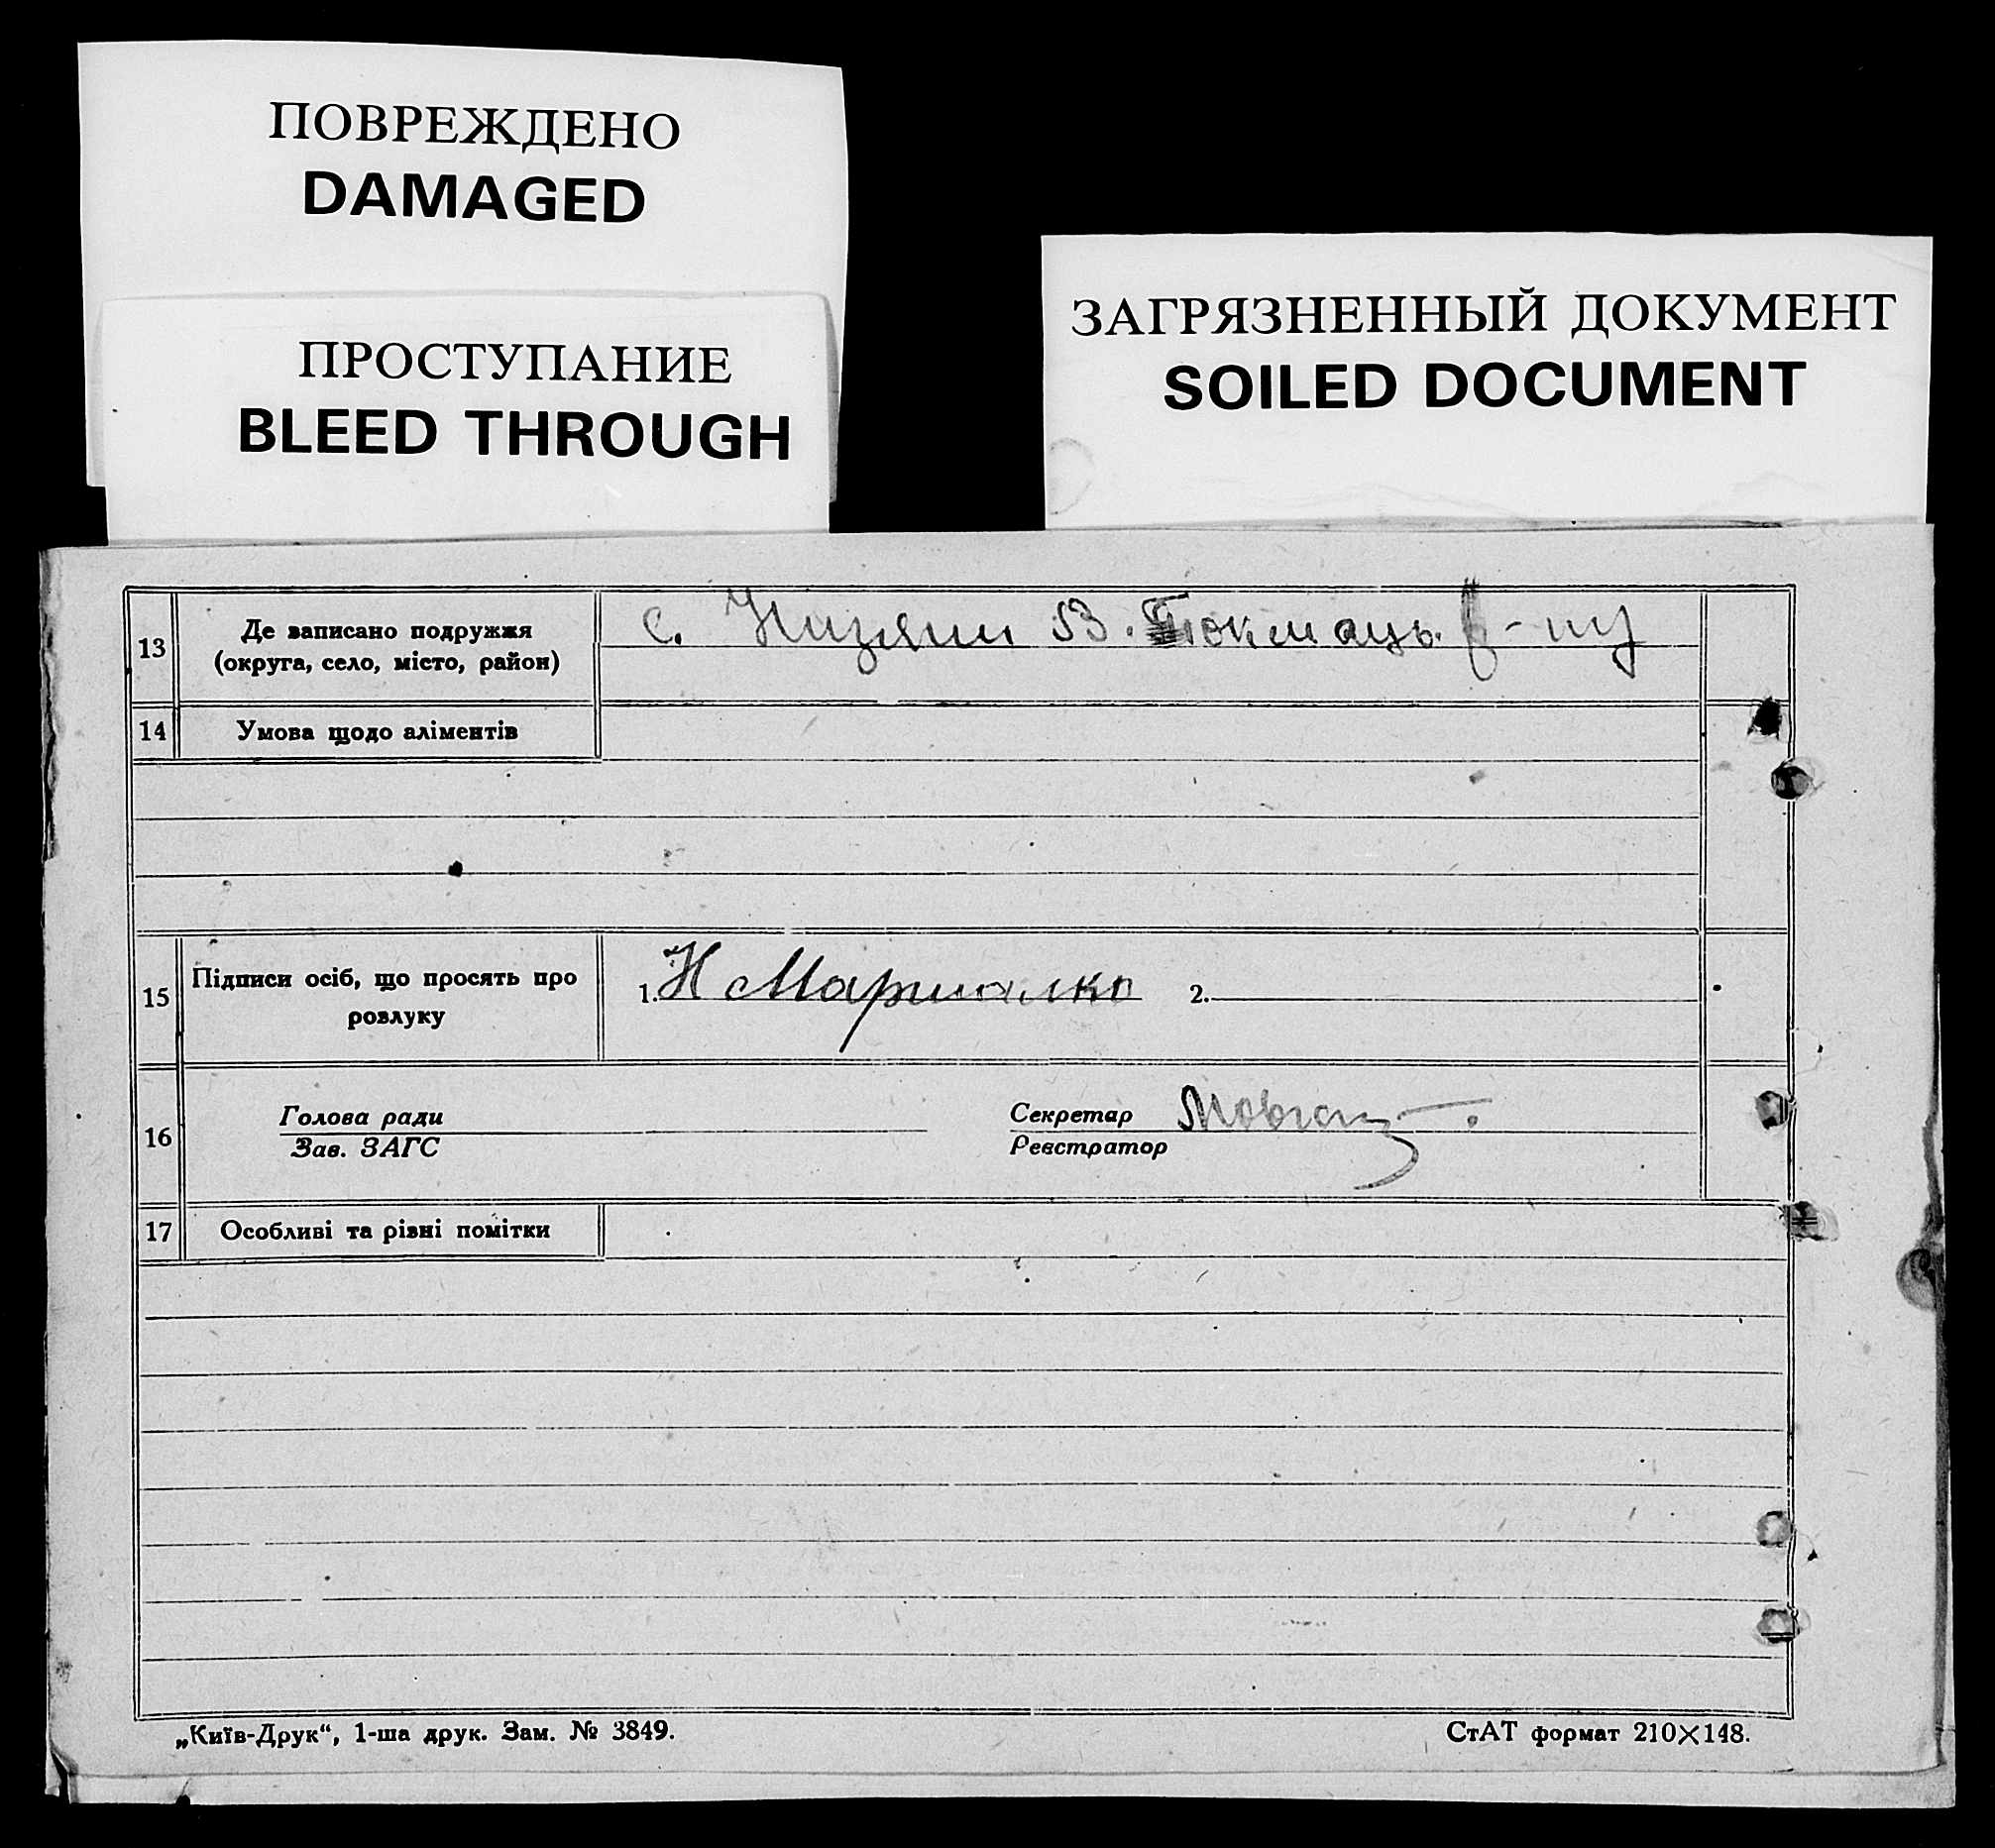 ПОВРЕЖДЕНО
DAMAGED
ПРОСТУПАНИЕ
BLEED THROUGH
ЗАГРЯЗНЕННЫЙ ДОКУМЕНТ
SOILED DOCUMENT
13
Де записано подружжя
(округа, село, місто, район)
с. Низяни В. Токмацьк. р-ну
14
Умова щодо аліментів
15
Підписи осіб, що просять про
розлуку
1. Н Маршалко 2.
16
Голова ради
Зав. ЗАГС
Секретар
Реєстратор
17
Особливі та різні помітки
„Київ-Друк“, 1-ша друк. Зам. № 3849.
СтАТ формат 210×148.